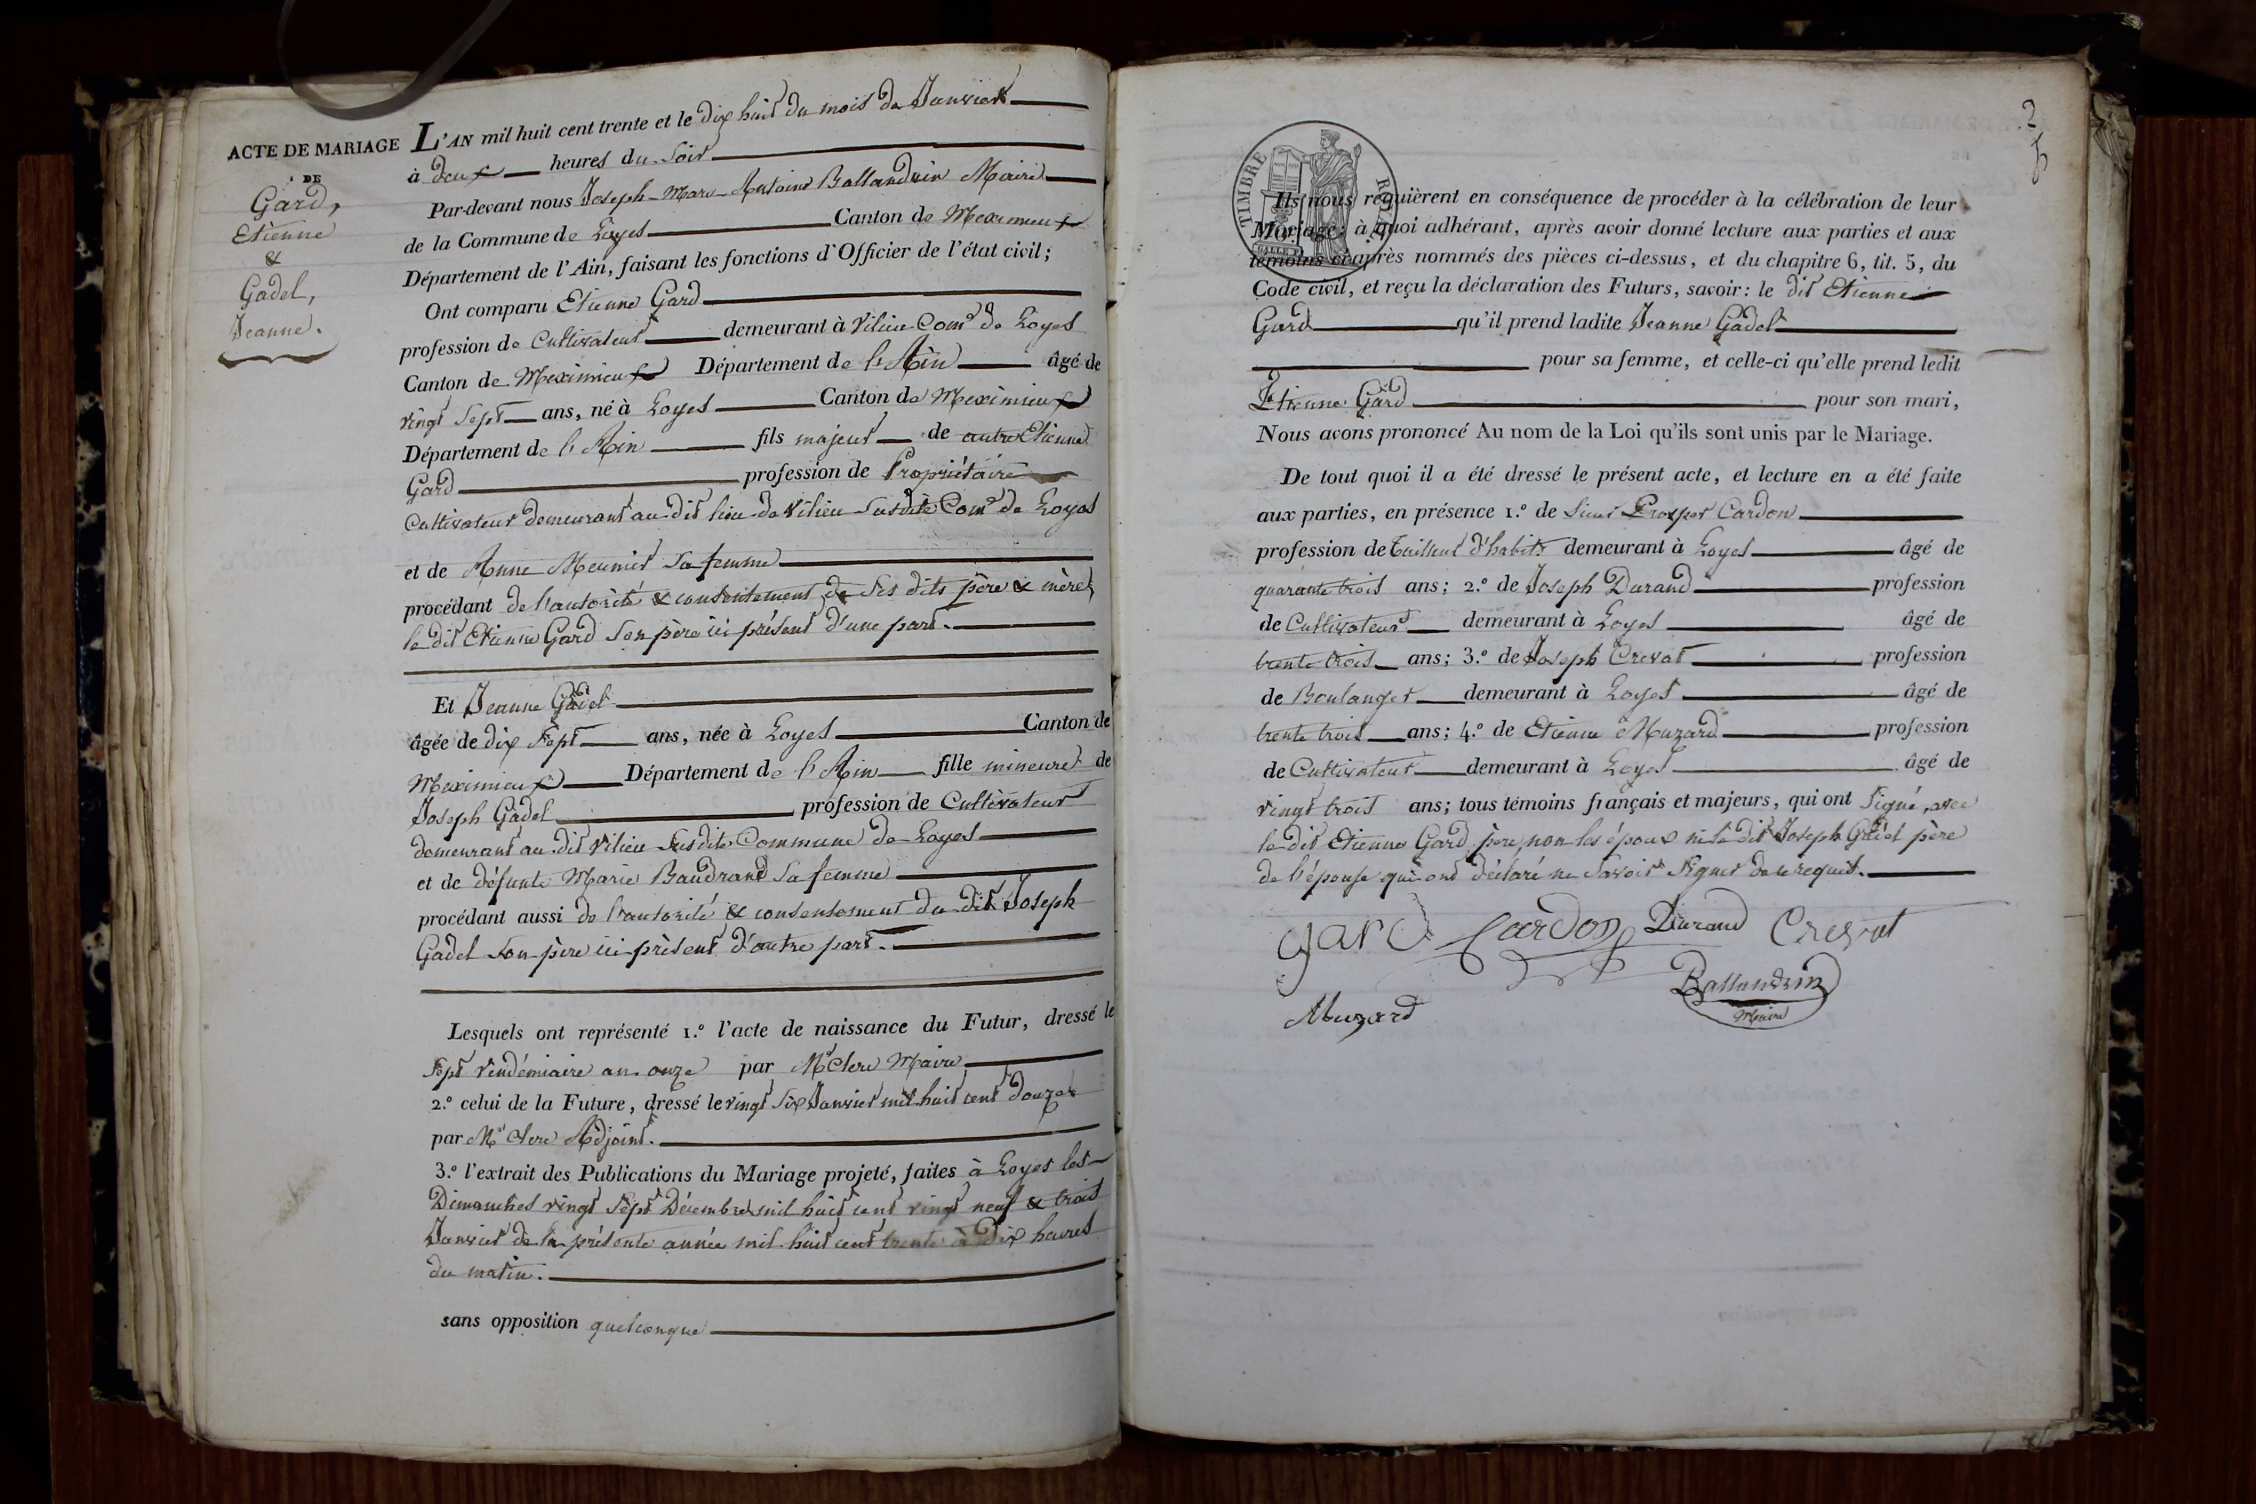 ACTE DE MARIAGE
DE
Gard,
Etienne
&
Gadel,
Jeanne.
L'AN mil huit cent trente et le dix huit du mois de Janvier
à deux heures du soir
Par-devant nous Joseph-Marc-Antoine Ballandrin Maire
de la Commune de Loyes Canton de Meximieux
Département de l'Ain, faisant les fonctions d'Officier de l'état civil;
Ont comparu Etienne Gard
profession de Cultivateur demeurant à Vilieu Com.e de Loyes
Canton de Meximieux Département de l'Ain âgé de
vingt Sept ans, né à Loyes Canton de Meximieux
Département de l'Ain fils majeur de autre Etienne
Gard profession de Propriétaire
Cultivateur demeurant au dit lieu de Vilieu susdite Com.e de Loyes
et de Anne Meunier sa femme
procédant de l'autorité & consentement de ses dits père & mère
le dit Etienne Gard son père ici présent d'une part.
Et Jeanne Gadel
âgée de dix sept ans, née à Loyes Canton de
Meximieux Département de l'Ain fille mineure de
Joseph Gadel profession de Cultivateur
demeurant au dit Vilieu susdite Commune de Loyes
et de défunte Marie Baudrand sa femme
procédant aussi de l'autorité & consentement du dit Joseph
Gadel son père ici présent d'autre part.
Lesquels ont représenté 1.º l'acte de naissance du Futur, dressé le
Sept Vendémiaire an onze par Mr Clerc Maire
2.º celui de la Future, dressé le vingt six Janvier mil huit cent douze
par Mr Clerc Adjoint.
3.º l'extrait des Publications du Mariage projeté, faites à Loyes les
Dimanches vingt sept Décembre mil huit cent vingt neuf & trois
Janvier de la présente année mil huit cent trente à dix heures
du matin.
sans opposition quelconque
2
TIMBRE ROYAL
Ils nous requièrent en conséquence de procéder à la célébration de leur
Mariage; à quoi adhérant, après avoir donné lecture aux parties et aux
témoins ci-après nommés des pièces ci-dessus, et du chapitre 6, tit. 5, du
Code civil, et reçu la déclaration des Futurs, savoir: le dit Etienne
Gard qu'il prend ladite Jeanne Gadel
pour sa femme, et celle-ci qu'elle prend ledit
Etienne Gard pour son mari,
Nous avons prononcé Au nom de la Loi qu'ils sont unis par le Mariage.
De tout quoi il a été dressé le présent acte, et lecture en a été faite
aux parties, en présence 1.º de Sieur Prosper Cardon
profession de tailleur d'habits demeurant à Loyes âgé de
quarante trois ans; 2.º de Joseph Durand profession
de Cultivateur demeurant à Loyes âgé de
trente trois ans; 3.º de Joseph Crevat profession
de Boulanger demeurant à Loyes âgé de
trente trois ans; 4.º de Etienne Muzard profession
de Cultivateur demeurant à Loyes âgé de
vingt trois ans; tous témoins français et majeurs, qui ont signé, avec
le dit Etienne Gard père, non les époux ni le dit Joseph Gadel père
de l'épouse qui ont déclaré ne savoir signer de ce requis.
gard Cardon Durand Crevat
Ballandrin
Maire
Muzard